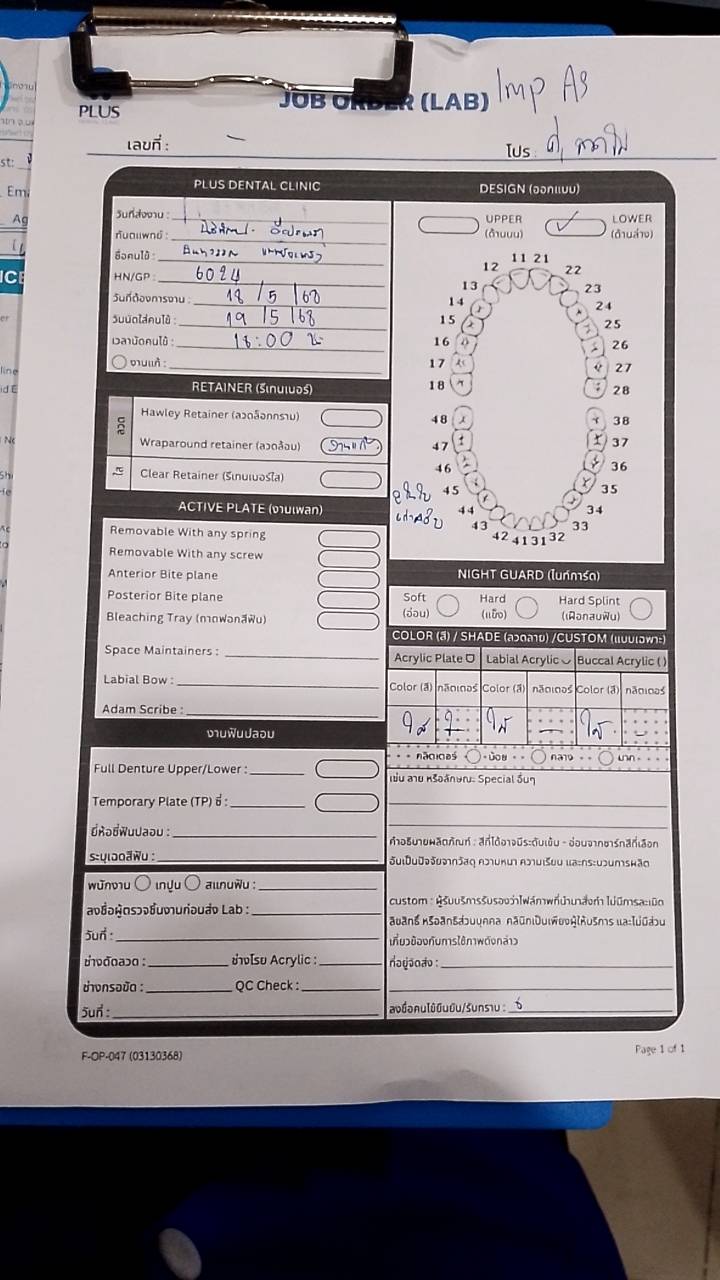 PLUS
JOB ORDER (LAB) Imp
เลขที่ : -
โปร :
PLUS DENTAL CLINIC
วันที่ส่งงาน :
ทันตแพทย์ :
ชื่อคนไข้ :
HN/GP : 6024
วันที่ต้องการงาน : 18 / 5 / 68
วันนัดใส่คนไข้ : 19 / 5 / 68
เวลานัดคนไข้ : 18:00 น.
งานแก้ :
RETAINER (รีเทนเนอร์)
ลวด
Hawley Retainer (ลวดล็อกกราม)
Wraparound retainer (ลวดอ้อม)
ใส
Clear Retainer (รีเทนเนอร์ใส)
ACTIVE PLATE (งานเพลท)
Removable With any spring
Removable With any screw
Anterior Bite plane
Posterior Bite plane
Bleaching Tray (ถาดฟอกสีฟัน)
Space Maintainers :
Labial Bow :
Adam Scribe :
งานฟันปลอม
Full Denture Upper/Lower :
Temporary Plate (TP) ซี่ :
ยี่ห้อซี่ฟันปลอม :
ระบุเฉดสีฟัน :
พนักงาน เทปูน สแกนฟัน :
ลงชื่อผู้ตรวจชิ้นงานก่อนส่ง Lab :
วันที่ :
ช่างดัดลวด : ช่างโรย Acrylic :
ช่างกรอขัด : QC Check :
วันที่ :
DESIGN (ออกแบบ)
UPPER (ด้านบน)
LOWER (ด้านล่าง)
11 21
12 22
13 23
14 24
15 25
16 26
17 27
18 28
48 38
47 37
46 36
45 35
44 34
43 33
42 41 31 32
NIGHT GUARD (ไนท์การ์ด)
Soft (อ่อน)
Hard (แข็ง)
Hard Splint (เฝือกสบฟัน)
COLOR (สี) / SHADE (ลวดลาย) /CUSTOM (แบบเฉพาะ)
Acrylic Plate Labial Acrylic Buccal Acrylic ( )
Color (สี) กลิตเตอร์ Color (สี) กลิตเตอร์ Color (สี) กลิตเตอร์
ใส - ใส - ใส -
กลิตเตอร์ น้อย กลาง มาก
เช่น ลาย หรือลักษณะ Special อื่นๆ
คำอธิบายผลิตภัณฑ์ : สีที่ได้อาจมีระดับเข้ม - อ่อนจากชาร์ทสีที่เลือก
อันเป็นปัจจัยจากวัสดุ ความหนา ความเรียบ และกระบวนการผลิต
custom : ผู้รับบริการรับรองว่าไฟล์ภาพที่นำมาสั่งทำ ไม่มีการละเมิด
ลิขสิทธิ์ หรือสิทธิส่วนบุคคล คลินิกเป็นเพียงผู้ให้บริการ และไม่มีส่วน
เกี่ยวข้องกับการใช้ภาพดังกล่าว
ที่อยู่จัดส่ง :
ลงชื่อคนไข้ยืนยัน/รับทราบ :
F-OP-047 (03130368)
Page 1 of 1